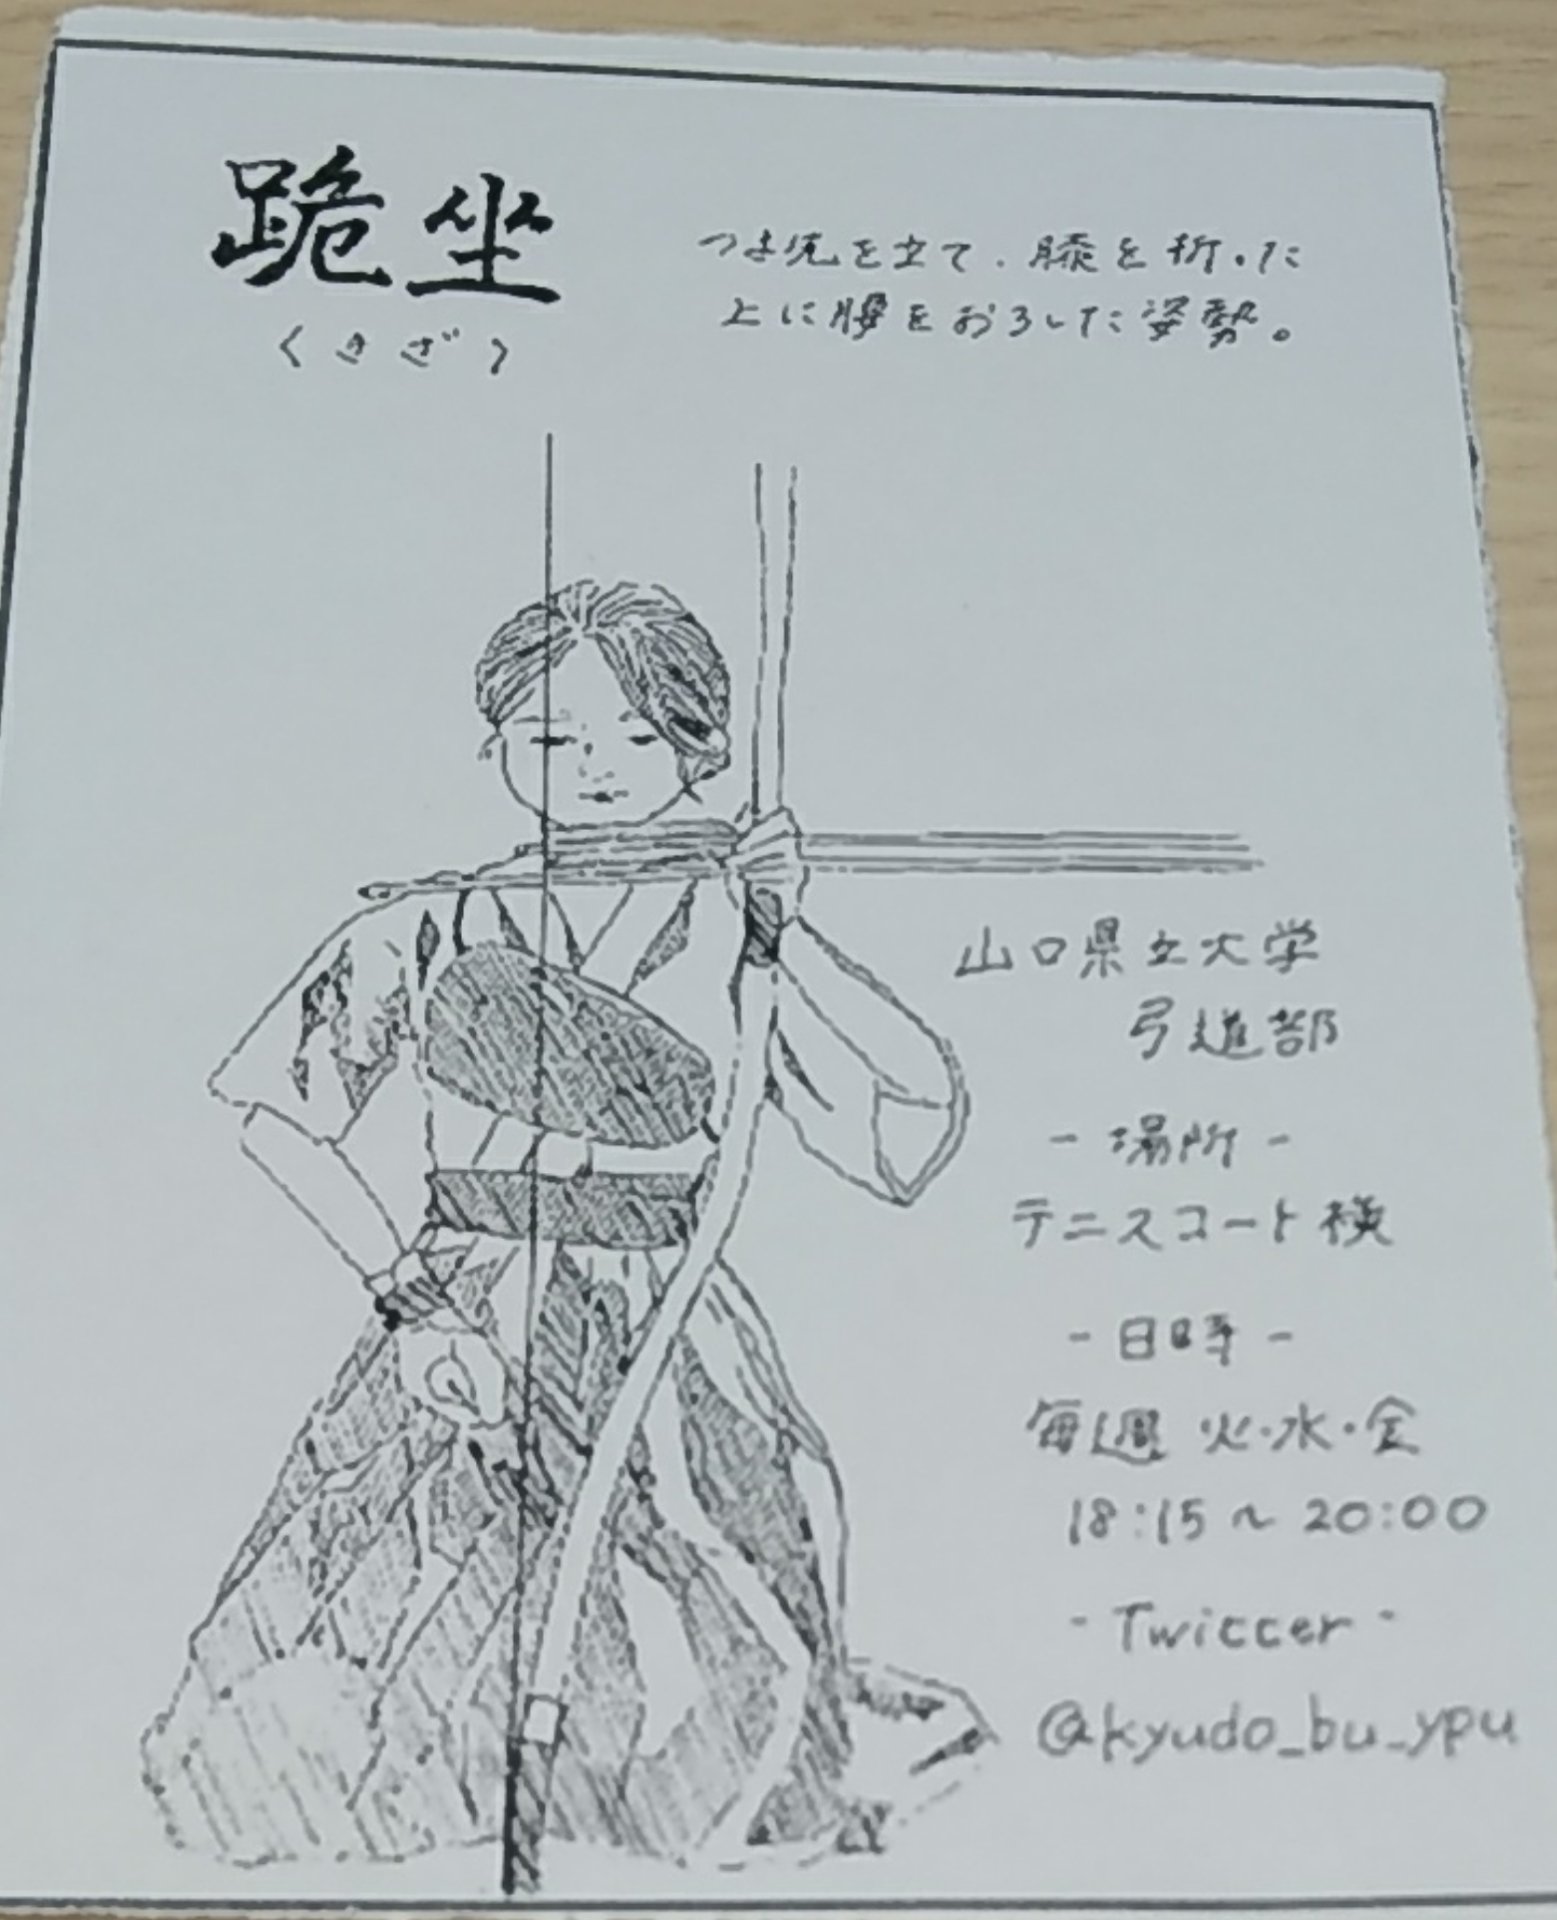 跪坐
〈きざ〉
つま先を立て、膝を折った
上に腰をおろした姿勢。
山口県立大学
弓道部
- 場所 -
テニスコート横
- 日時 -
毎週 火・水・金
18:15～20:00
- Twitter -
@kyudo_bu_ypu